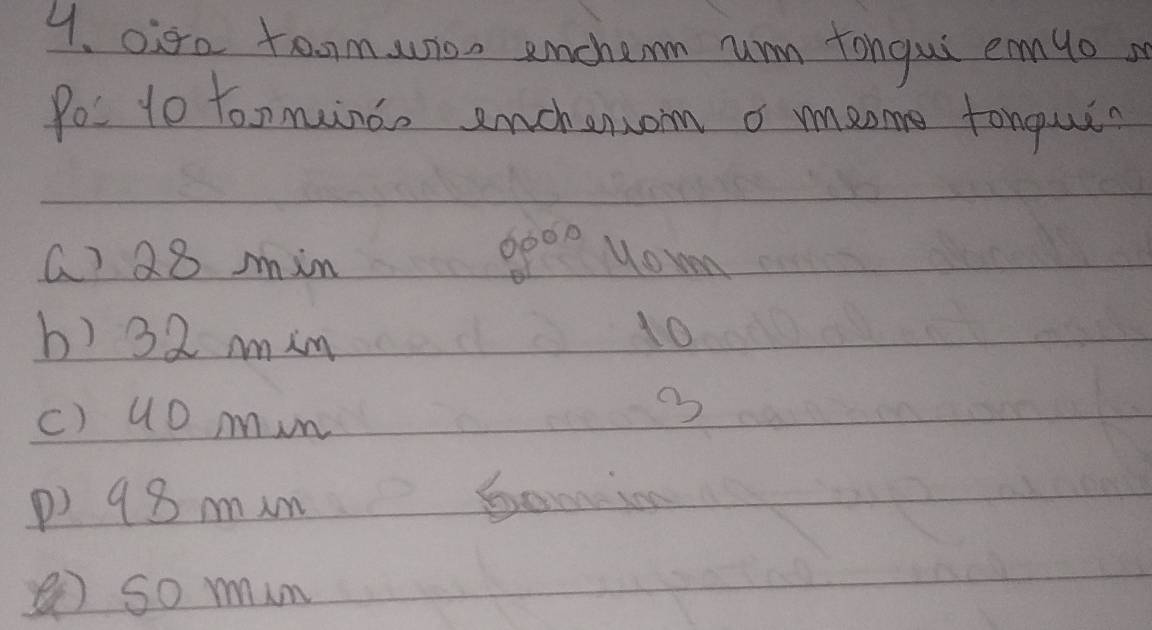 4. oito torneiras enchem um tanqui em 40
Po: 10 torneirás encheriam o mesmo tanqué
a) 28 min 40m
b) 32 min 10
c) 40 min 3
D) 48 min
e) 50 min